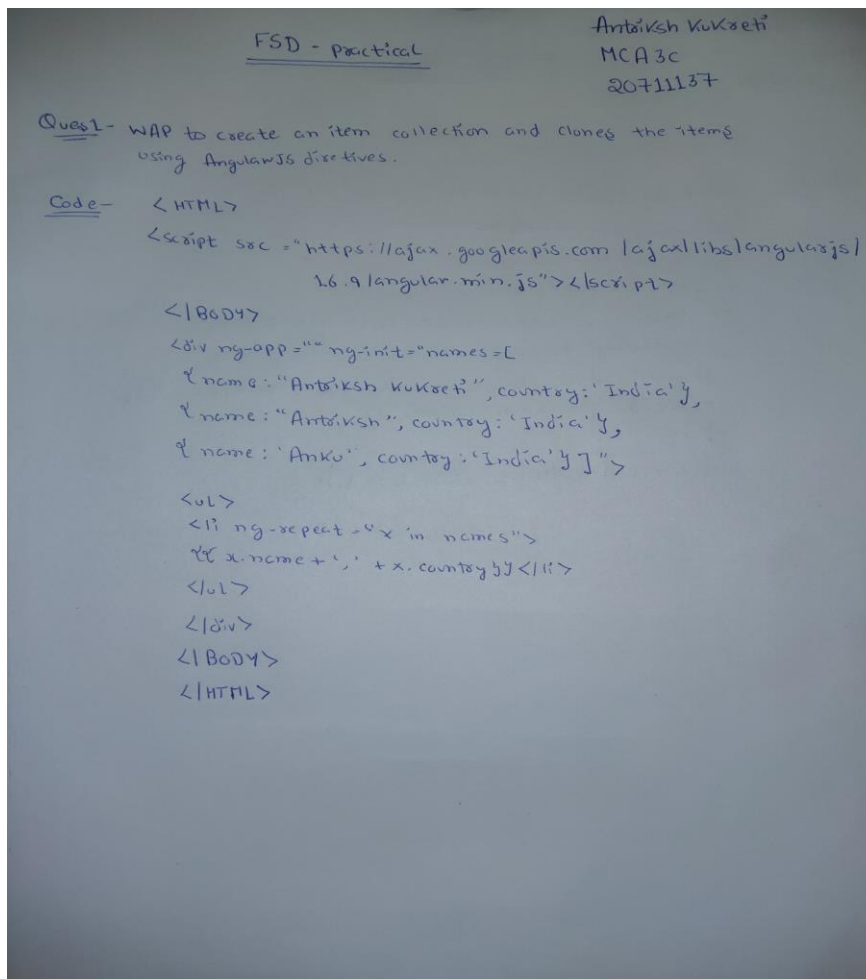 FSD - practical
Antriksh Kukreti
MCA 3C
20711137
Ques1- WAP to create an item collection and clones the items
using AngularJS diretives.
Code- <HTML>
<script src="https://ajax.googleapis.com/ajax/libs/angularjs/
1.6.9/angular.min.js"></script>
</BODY>
<div ng-app="" ng-init="names=[
{name:"Antriksh Kukreti", country:'India'},
{name:"Antriksh", country:'India'},
{name:'Anku', country:'India'}]">
<ul>
<li ng-repeat="x in names">
{{x.name+','+x.country}}</li>
</ul>
</div>
</BODY>
</HTML>